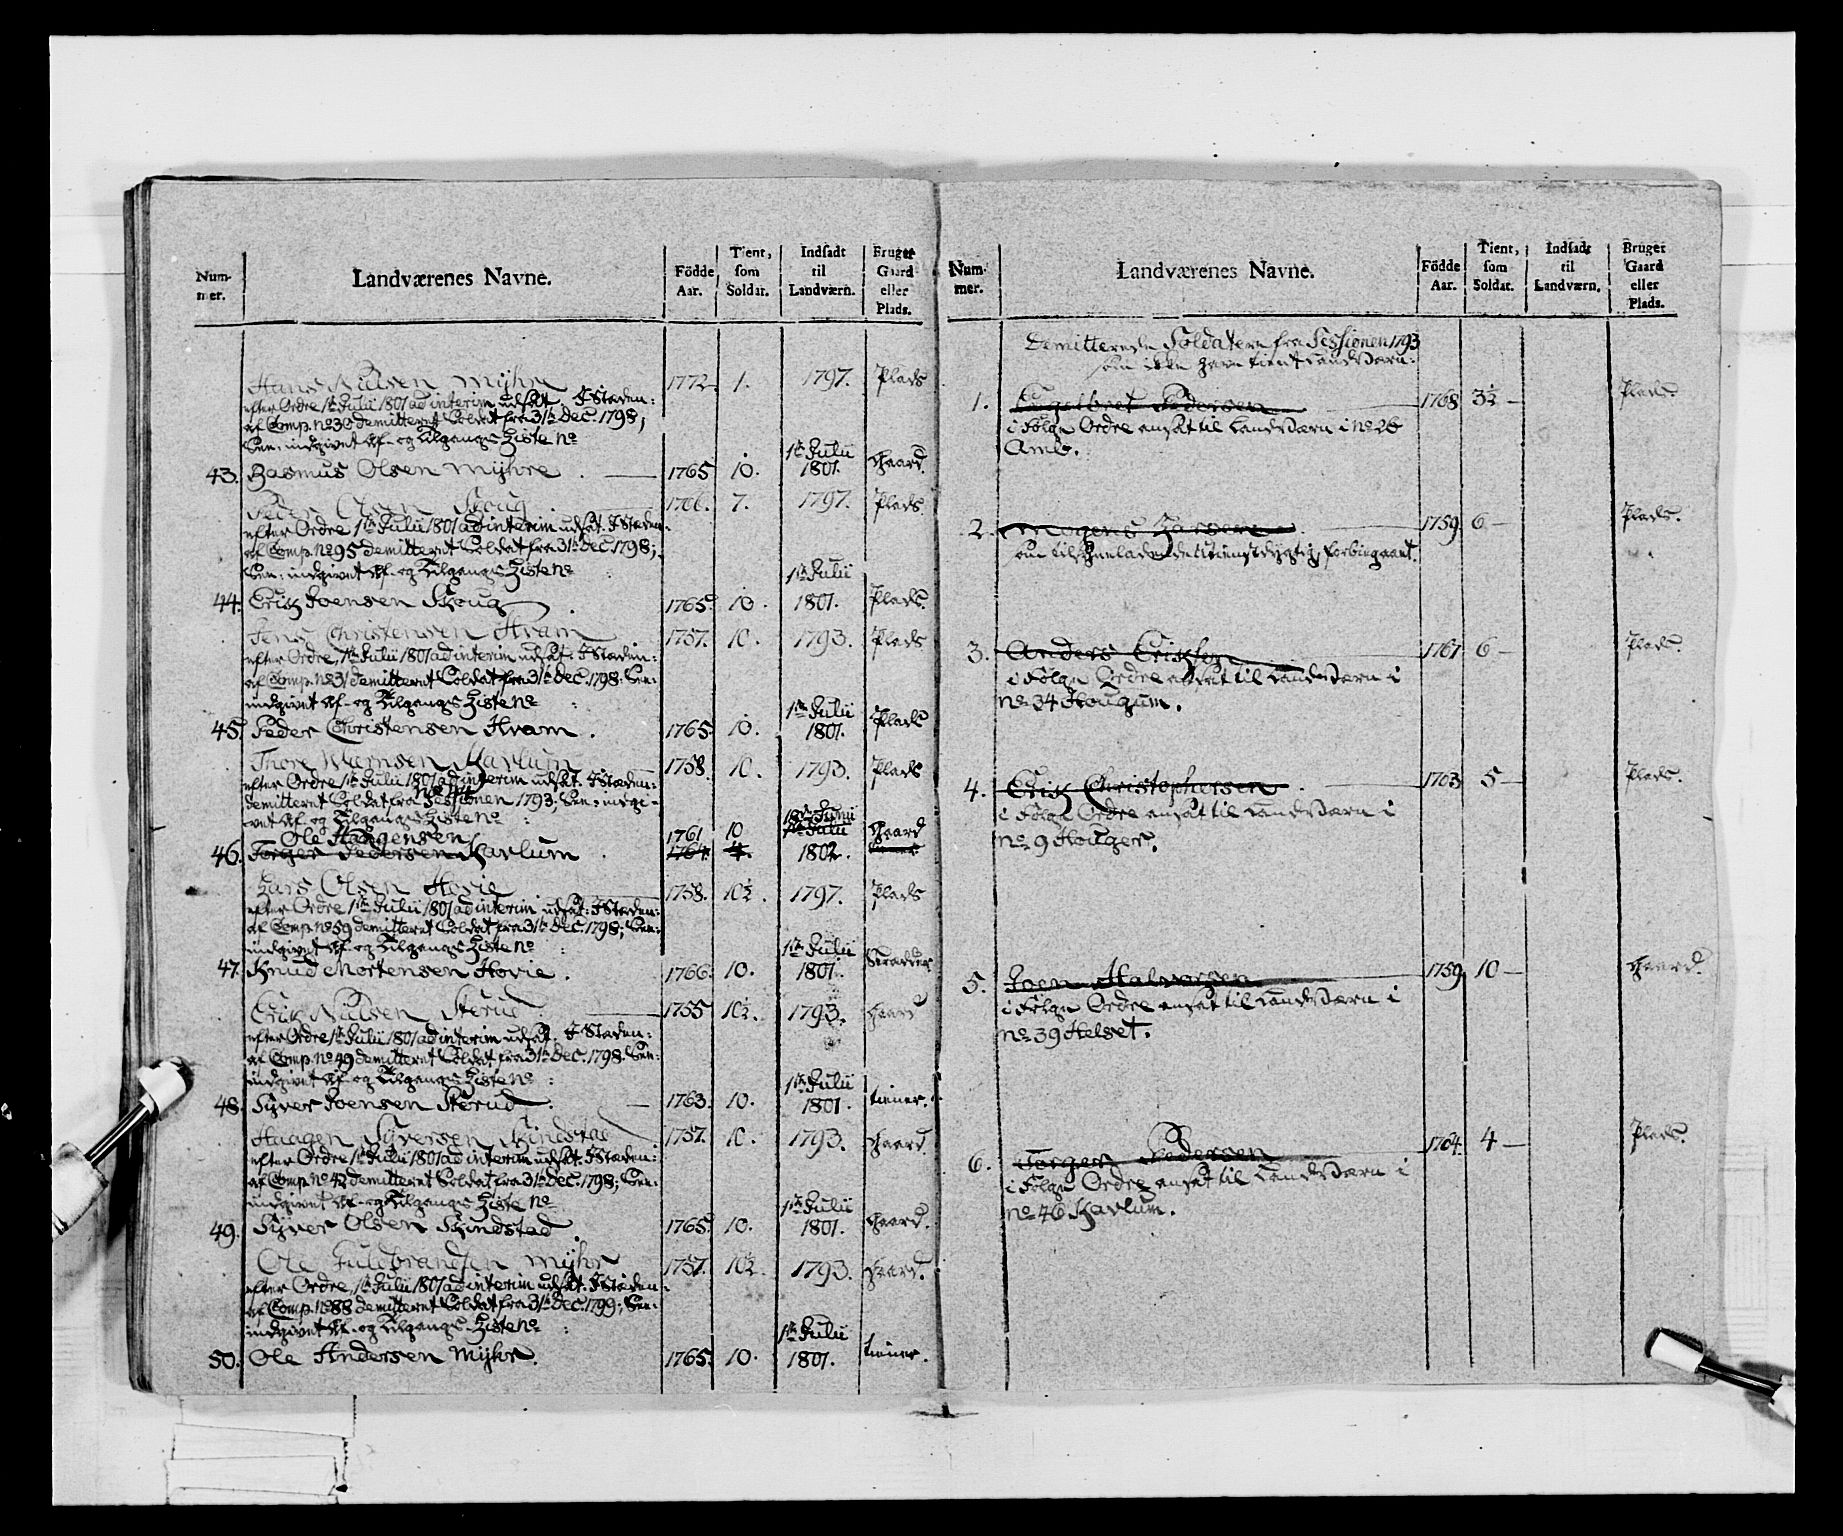 Num-
mer.
Landværenes Navne.
Födde
Aar.
Tient,
som
Soldat.
Indsadt
til
Landværn.
Bruger
Gaard
eller
Plads.
Hans Nilsen Mÿhre 1772 1. 1797. Plads
efter Ordre 1te Julii 1801 ad interim udsat. I Stæden:
af Comp. No 30 demitteret Soldat fra 31te Dec. 1798;
indgivet Af- og Tilgangs Liste No
43. Rasmus Olsen Mÿhre. 1765 10. 1te Julii 1801. Gaard.
Peder Olsen Skoug 1766. 7. 1797. Plads
efter Ordre 1te Julii 1801 ad interim udsat. I Stæden.
af Comp. No 95 demitteret Soldat fra 31te Dec. 1798;
indgivet Af- og Tilgangs Liste No
44. Erik Joensen Skoug 1765. 10. 1te Julii 1801. Plads.
Jens Christensen Hvam 1757. 10. 1793. Plads
efter Ordre, 1te Julii 1801 ad interim udsat. I Stæden:
af Comp. No 31 demitteret Soldat fra 31te Dec. 1798.
indgivet Af- og Tilgangs Liste No
45. Peder Christensen Hvam. 1765. 10. 1te Julii 1801. Plads
Thore Karlum 1758. 10. 1793. Plads
efter Ordre 1te Julii 1801 ad interim udsat. I Stæden:
demitteret Soldat fra Sessionen 1793; indgi-
vet Af- og Tilgangs Liste No
Ole Haagensen 1761 10 Gaard
46. Torger Pedersen Karlum. 1764. 4. 1te Julii 1802.
Lars Olsen Hovie 1758. 10½. 1797. Plads
efter Ordre 1te Julii 1801 ad interim udsat: I Stæden:
af Comp. No 59 demitteret Soldat fra 31te Dec. 1798;
indgivet Af- og Tilgangs Liste No
47. Knud Mortensen Hovie. 1766. 10. 1te Julii 1801.
Erik Nilsen Sterud 1755 10½. 1793. Gaard
efter Ordre 1te Julii 1801 ad interim udsat. I Stæden:
af Comp. No 49 demitteret Soldat fra 31te Dec. 1798.
indgivet Af- og Tilgangs Liste No:
48. Sÿver Joensen Sterud. 1763. 10. 1te Julii 1801. tiener.
Haagen Sÿversen Skindstad 1757. 10. 1793. Gaard.
efter Ordre 1te Julii 1801 ad interim udsat. I Stæden:
af Comp. No 42 demitteret Soldat fra 31te Dec. 1798;
indgivet Af- og Tilgangs Liste No
49. Sÿver Olsen Skindstad 1765. 10. 1te Julii 1801. Gaard.
Ole Guldbrandsen Mÿhr 1757. 10½. 1793. Gaard.
efter Ordre, 1te Julii 1801 ad interim udsat. I Stæden.
af Comp. No 88 demitteret Soldat fra 31te Dec. 1799;
indgivet Af- og Tilgangs Liste No
50. Ole Andersen Mÿhr. 1765. 10. 1te Julii 1801. tiener.
Num-
mer.
Landværenes Navne.
Födde
Aar.
Tient,
som
Soldat.
Indsadt
til
Landværn.
Bruger
Gaard
eller
Plads.
Demitterede Soldater fra Sessionen 1793
som ikke have tient Landværn.
1. Engelbret Pedersen 1768 3½ Plads.
i Følge Ordre ansat til Landværn i No 26
Amb.
2. Mogens Larsen 1759. 6 Plads.
forbigaaet.
3. Anders Eriksen 1767 6 Plads.
i Følge Ordre ansat til Landværn i
No 34 Hougum.
4. Erik Christophersen. 1763 5 Plads.
i Følge Ordre ansat til Landværn i
No 9 Houger.
5. Joen Halvorsen 1759 10 Gaard.
i Følge Ordre ansat til Landværn i
No 39 Helset.
6. Torger Pedersen 1764. 4 Plads.
i Følge Ordre ansat til Landværn i
No 46 Karlum.